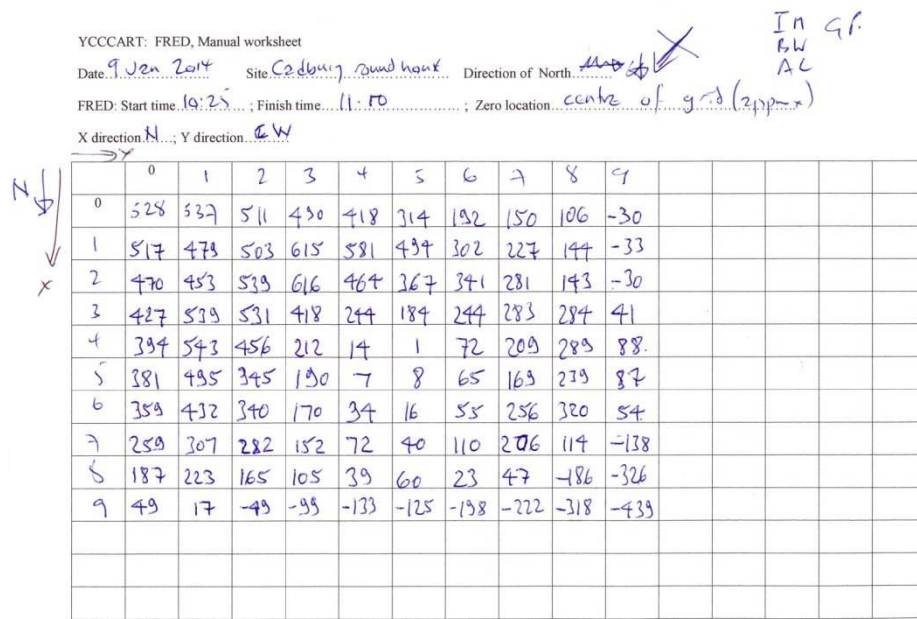 IM GP.
BW
AL
YCCCART: FRED, Manual worksheet
Date 9 Jan 2014 Site Cadbury roundhouse Direction of North
FRED: Start time 10:25 ; Finish time 11.10 ; Zero location centre of grid (approx)
X direction N ; Y direction W
Y
0 1 2 3 4 5 6 7 8 9
N
0 528 537 511 490 418 314 192 150 106 -30
1 517 479 503 615 581 494 302 227 144 -33
X
2 470 453 539 616 464 367 341 281 143 -30
3 427 539 531 418 244 184 244 283 284 41
4 394 543 456 212 14 1 72 209 289 88.
5 381 495 345 190 7 8 65 169 239 87
6 359 432 340 170 34 16 55 256 320 54
7 259 307 282 152 72 40 110 206 114 -138
8 187 223 165 105 39 60 23 47 -186 -326
9 49 17 -49 -99 -133 -125 -198 -222 -318 -439